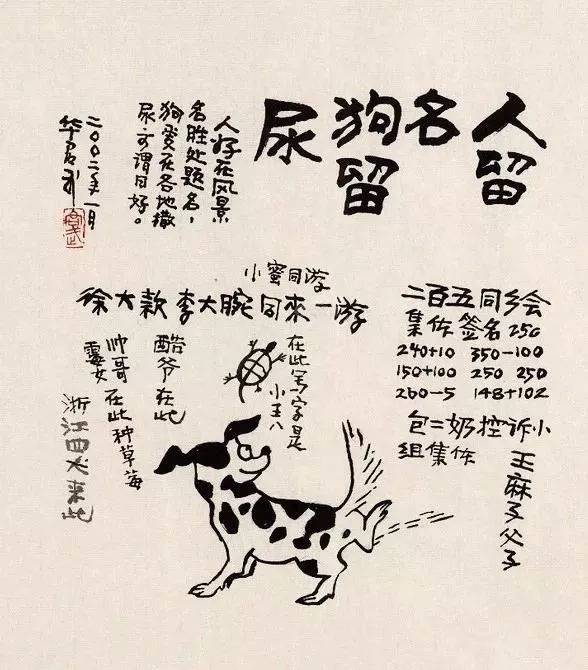 人留
名
狗留
尿
人好在风景
名胜处题名，
狗爱在各地撒
尿，可谓同好。
二〇〇二年一月
华君武
小蜜同游
徐大款 李大腕 同來一游
二百五同乡会
集体签名250
240+10 350-100
150+100 250 250
260-5 148+102
包二奶控诉小
组集体
王麻子父子
在此写字是
小王八
酷爷在此
帅哥
女
在此种草莓
浙江四犬来此